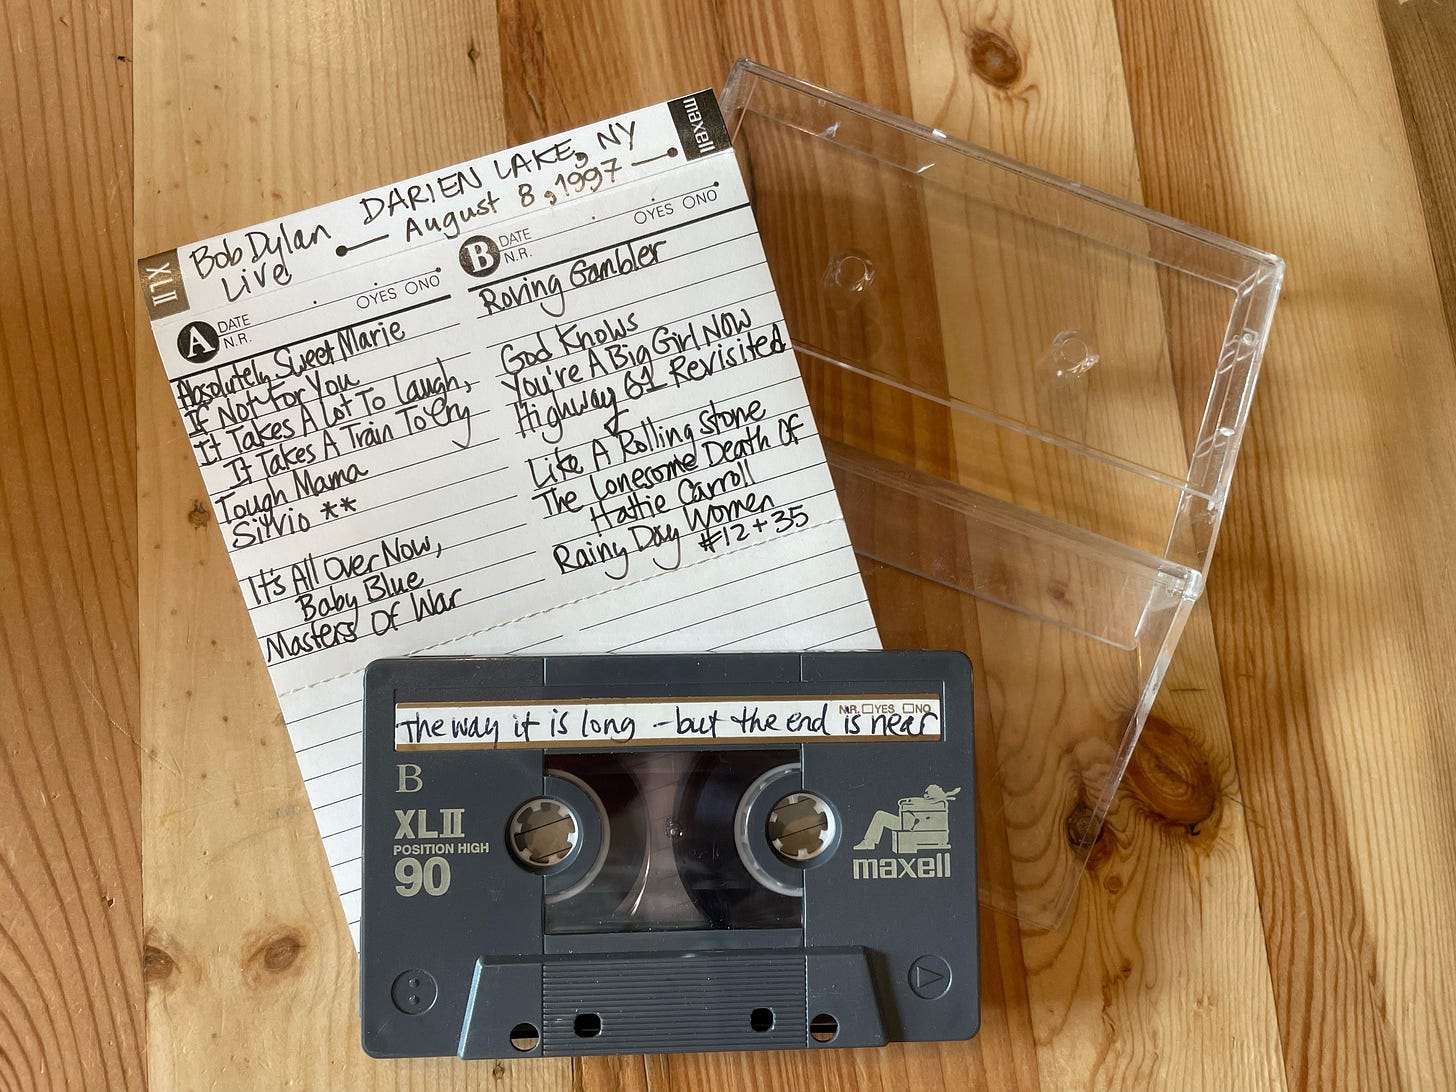 maxell
XLII
Bob Dylan DARIEN LAKE, NY
Live August 8, 1997
A DATE
N.R. OYES ONO
Absolutely Sweet Marie
If Not For You
It Takes A Lot To Laugh,
It Takes A Train To Cry
Tough Mama
Silvio **
It's All Over Now,
Baby Blue
Masters Of War
B DATE
N.R. OYES ONO
Roving Gambler
God Knows
You're A Big Girl Now
Highway 61 Revisited
Like A Rolling Stone
The Lonesome Death Of
Hattie Carroll
Rainy Day Women
#12 + 35
N.R. □YES □NO
The way it is long - but the end is near
B
XLII
POSITION HIGH
90
maxell